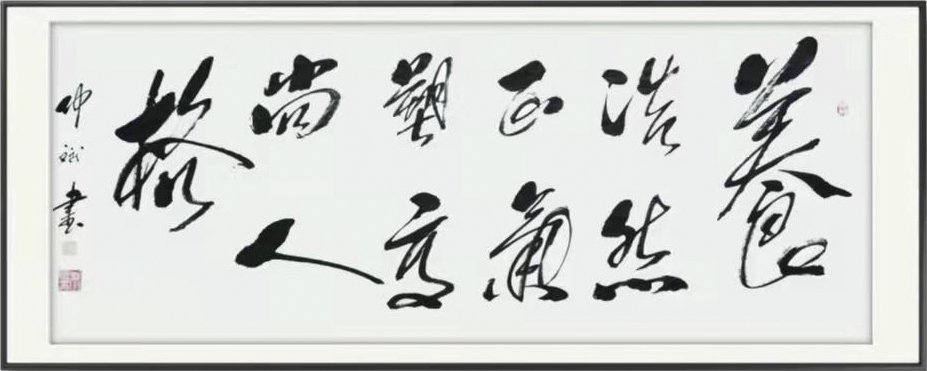 養
浩然
正氣
塑高
尚人
格
仲斌書